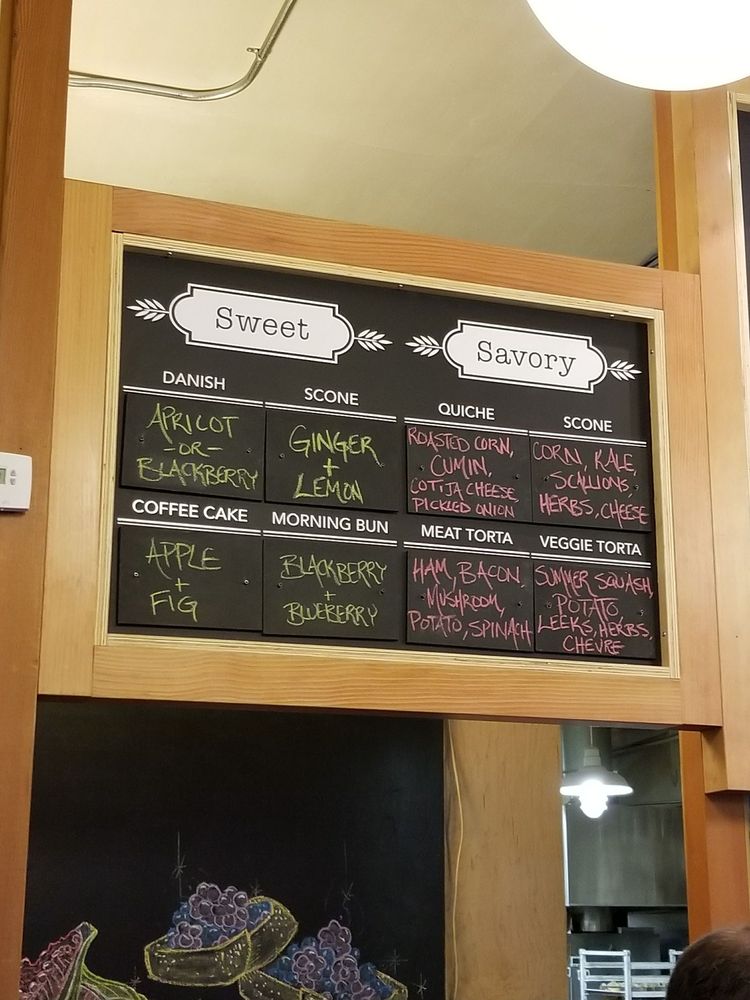 Sweet
DANISH
APRICOT
-OR-
BLACKBERRY
SCONE
GINGER
+
LEMON
COFFEE CAKE
APPLE
+
FIG
MORNING BUN
BLACKBERRY
+
BLUEBERRY
Savory
QUICHE
ROASTED CORN,
CUMIN,
COTIJA CHEESE
PICKLED ONION
SCONE
CORN, KALE,
SCALLIONS,
HERBS, CHEESE
MEAT TORTA
HAM, BACON,
MUSHROOM,
POTATO, SPINACH
VEGGIE TORTA
SUMMER SQUASH,
POTATO,
LEEKS, HERBS,
CHEVRE